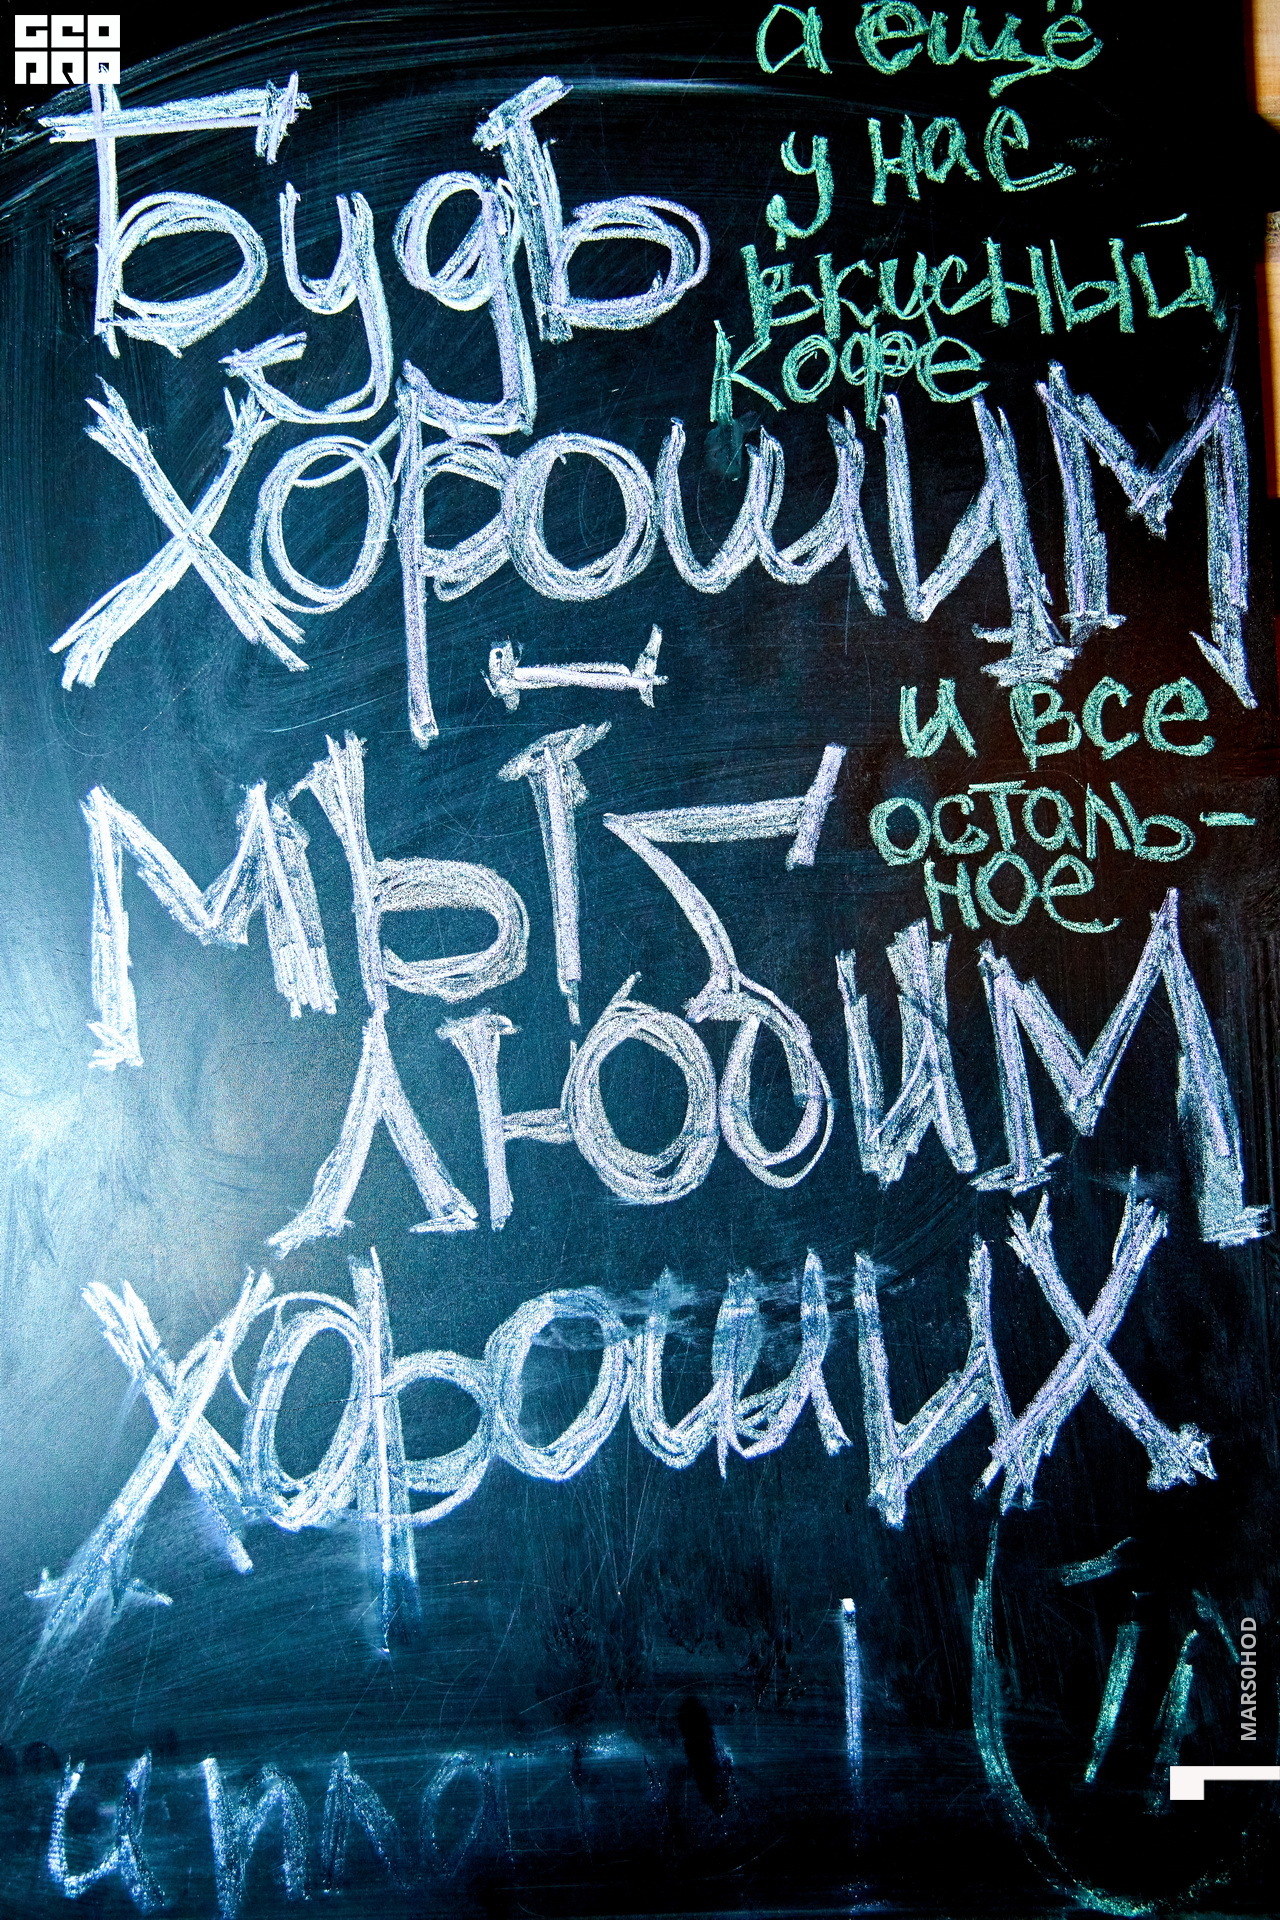 а ещё
у нас
вкусный
кофе
Будь
хорошим
-
и все
осталь-
ное
мы
любим
хороших
MARSOHOD